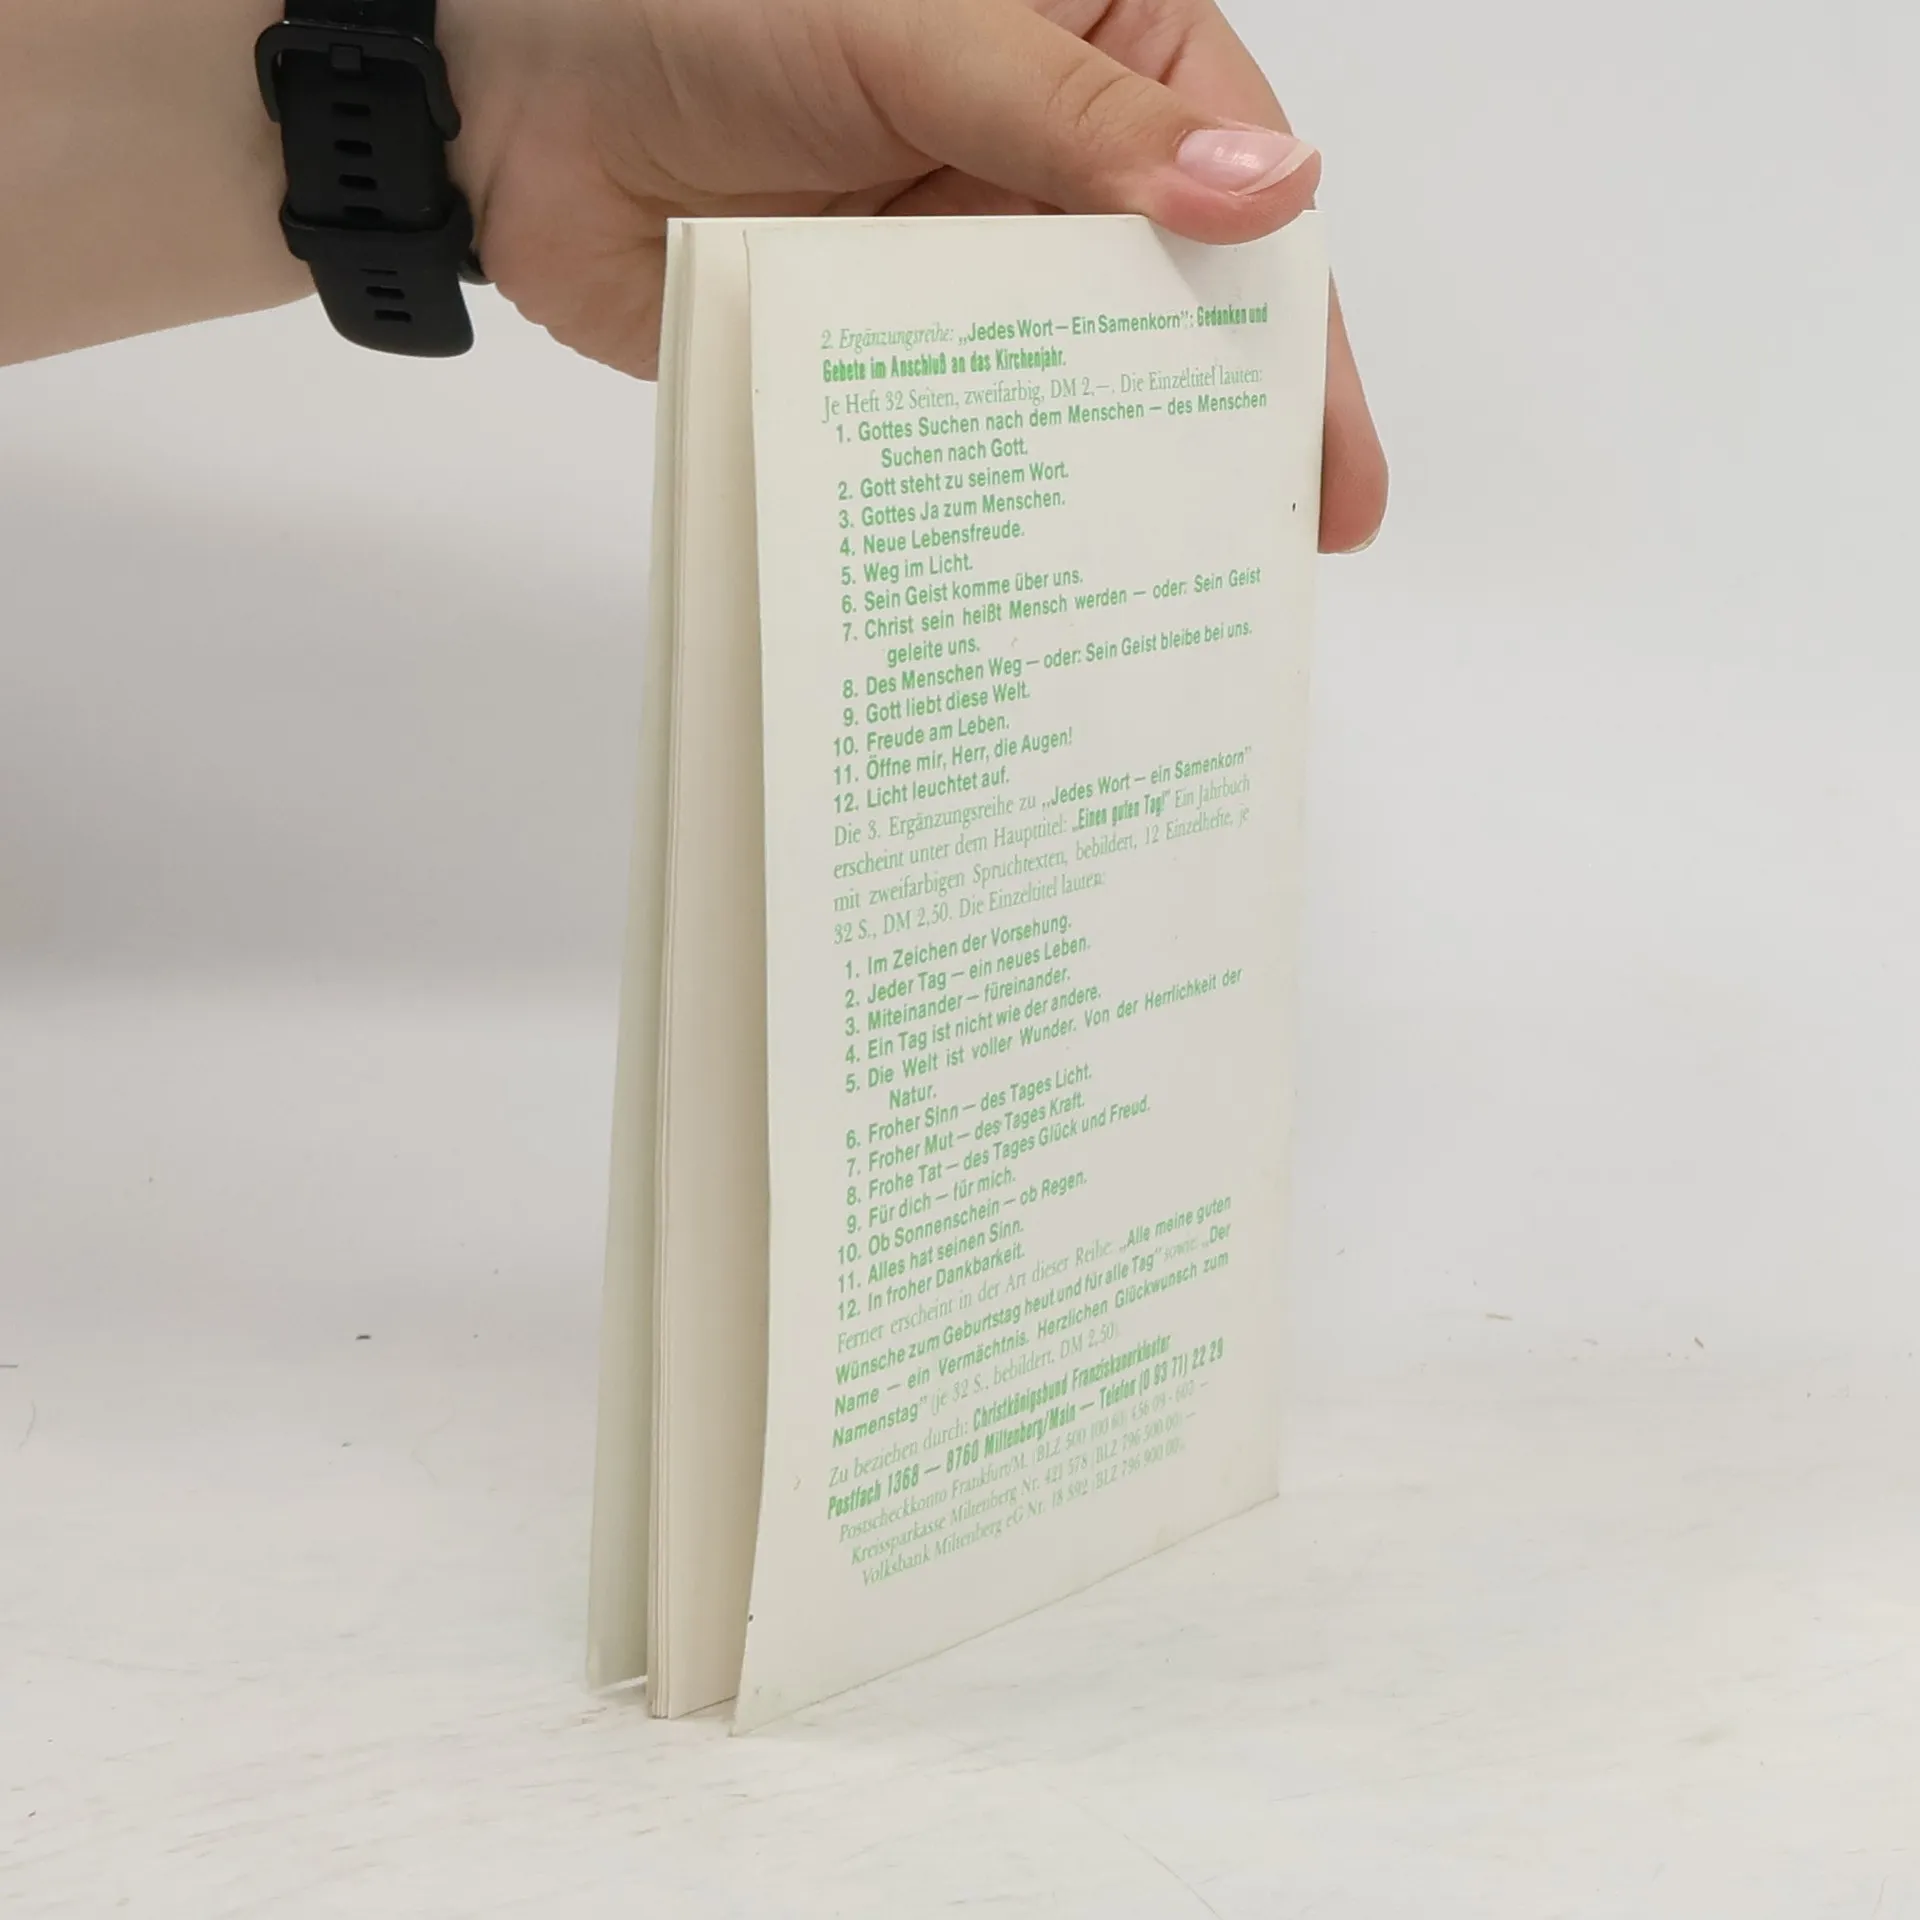 2. Ergänzungsreihe: „Jedes Wort – Ein Samenkorn”: Gedanken und
Gebete im Anschluß an das Kirchenjahr.
Je Heft 32 Seiten, zweifarbig, DM 2,–. Die Einzeltitel lauten:
1. Gottes Suchen nach dem Menschen – des Menschen
Suchen nach Gott.
2. Gott steht zu seinem Wort.
3. Gottes Ja zum Menschen.
4. Neue Lebensfreude.
5. Weg im Licht.
6. Sein Geist komme über uns.
7. Christ sein heißt Mensch werden – oder: Sein Geist
geleite uns.
8. Des Menschen Weg – oder: Sein Geist bleibe bei uns.
9. Gott liebt diese Welt.
10. Freude am Leben.
11. Öffne mir, Herr, die Augen!
12. Licht leuchtet auf.
Die 3. Ergänzungsreihe zu „Jedes Wort – ein Samenkorn”
erscheint unter dem Haupttitel: „Einen guten Tag!” Ein Jahrbuch
mit zweifarbigen Spruchtexten, bebildert, 12 Einzelhefte, je
32 S., DM 2,50. Die Einzeltitel lauten:
1. Im Zeichen der Vorsehung.
2. Jeder Tag – ein neues Leben.
3. Miteinander – füreinander.
4. Ein Tag ist nicht wie der andere.
5. Die Welt ist voller Wunder. Von der Herrlichkeit der
Natur.
6. Froher Sinn – des Tages Licht.
7. Froher Mut – des Tages Kraft.
8. Frohe Tat – des Tages Glück und Freud.
9. Für dich – für mich.
10. Ob Sonnenschein – ob Regen.
11. Alles hat seinen Sinn.
12. In froher Dankbarkeit.
Ferner erscheint in der Art dieser Reihe: „Alle meine guten
Wünsche zum Geburtstag heut und für alle Tag” sowie: „Der
Name – ein Vermächtnis. Herzlichen Glückwunsch zum
Namenstag” (je 32 S., bebildert, DM 2,50).
Zu beziehen durch: Christkönigsbund Franziskanerkloster
Postfach 1368 – 8760 Miltenberg/Main – Telefon (0 93 71) 22 29
Postscheckkonto Frankfurt/M. (BLZ 500 100 60) 436 09 - 602 –
Kreissparkasse Miltenberg Nr. 421 578 (BLZ 796 500 00) –
Volksbank Miltenberg eG Nr. 18 392 (BLZ 796 900 00).